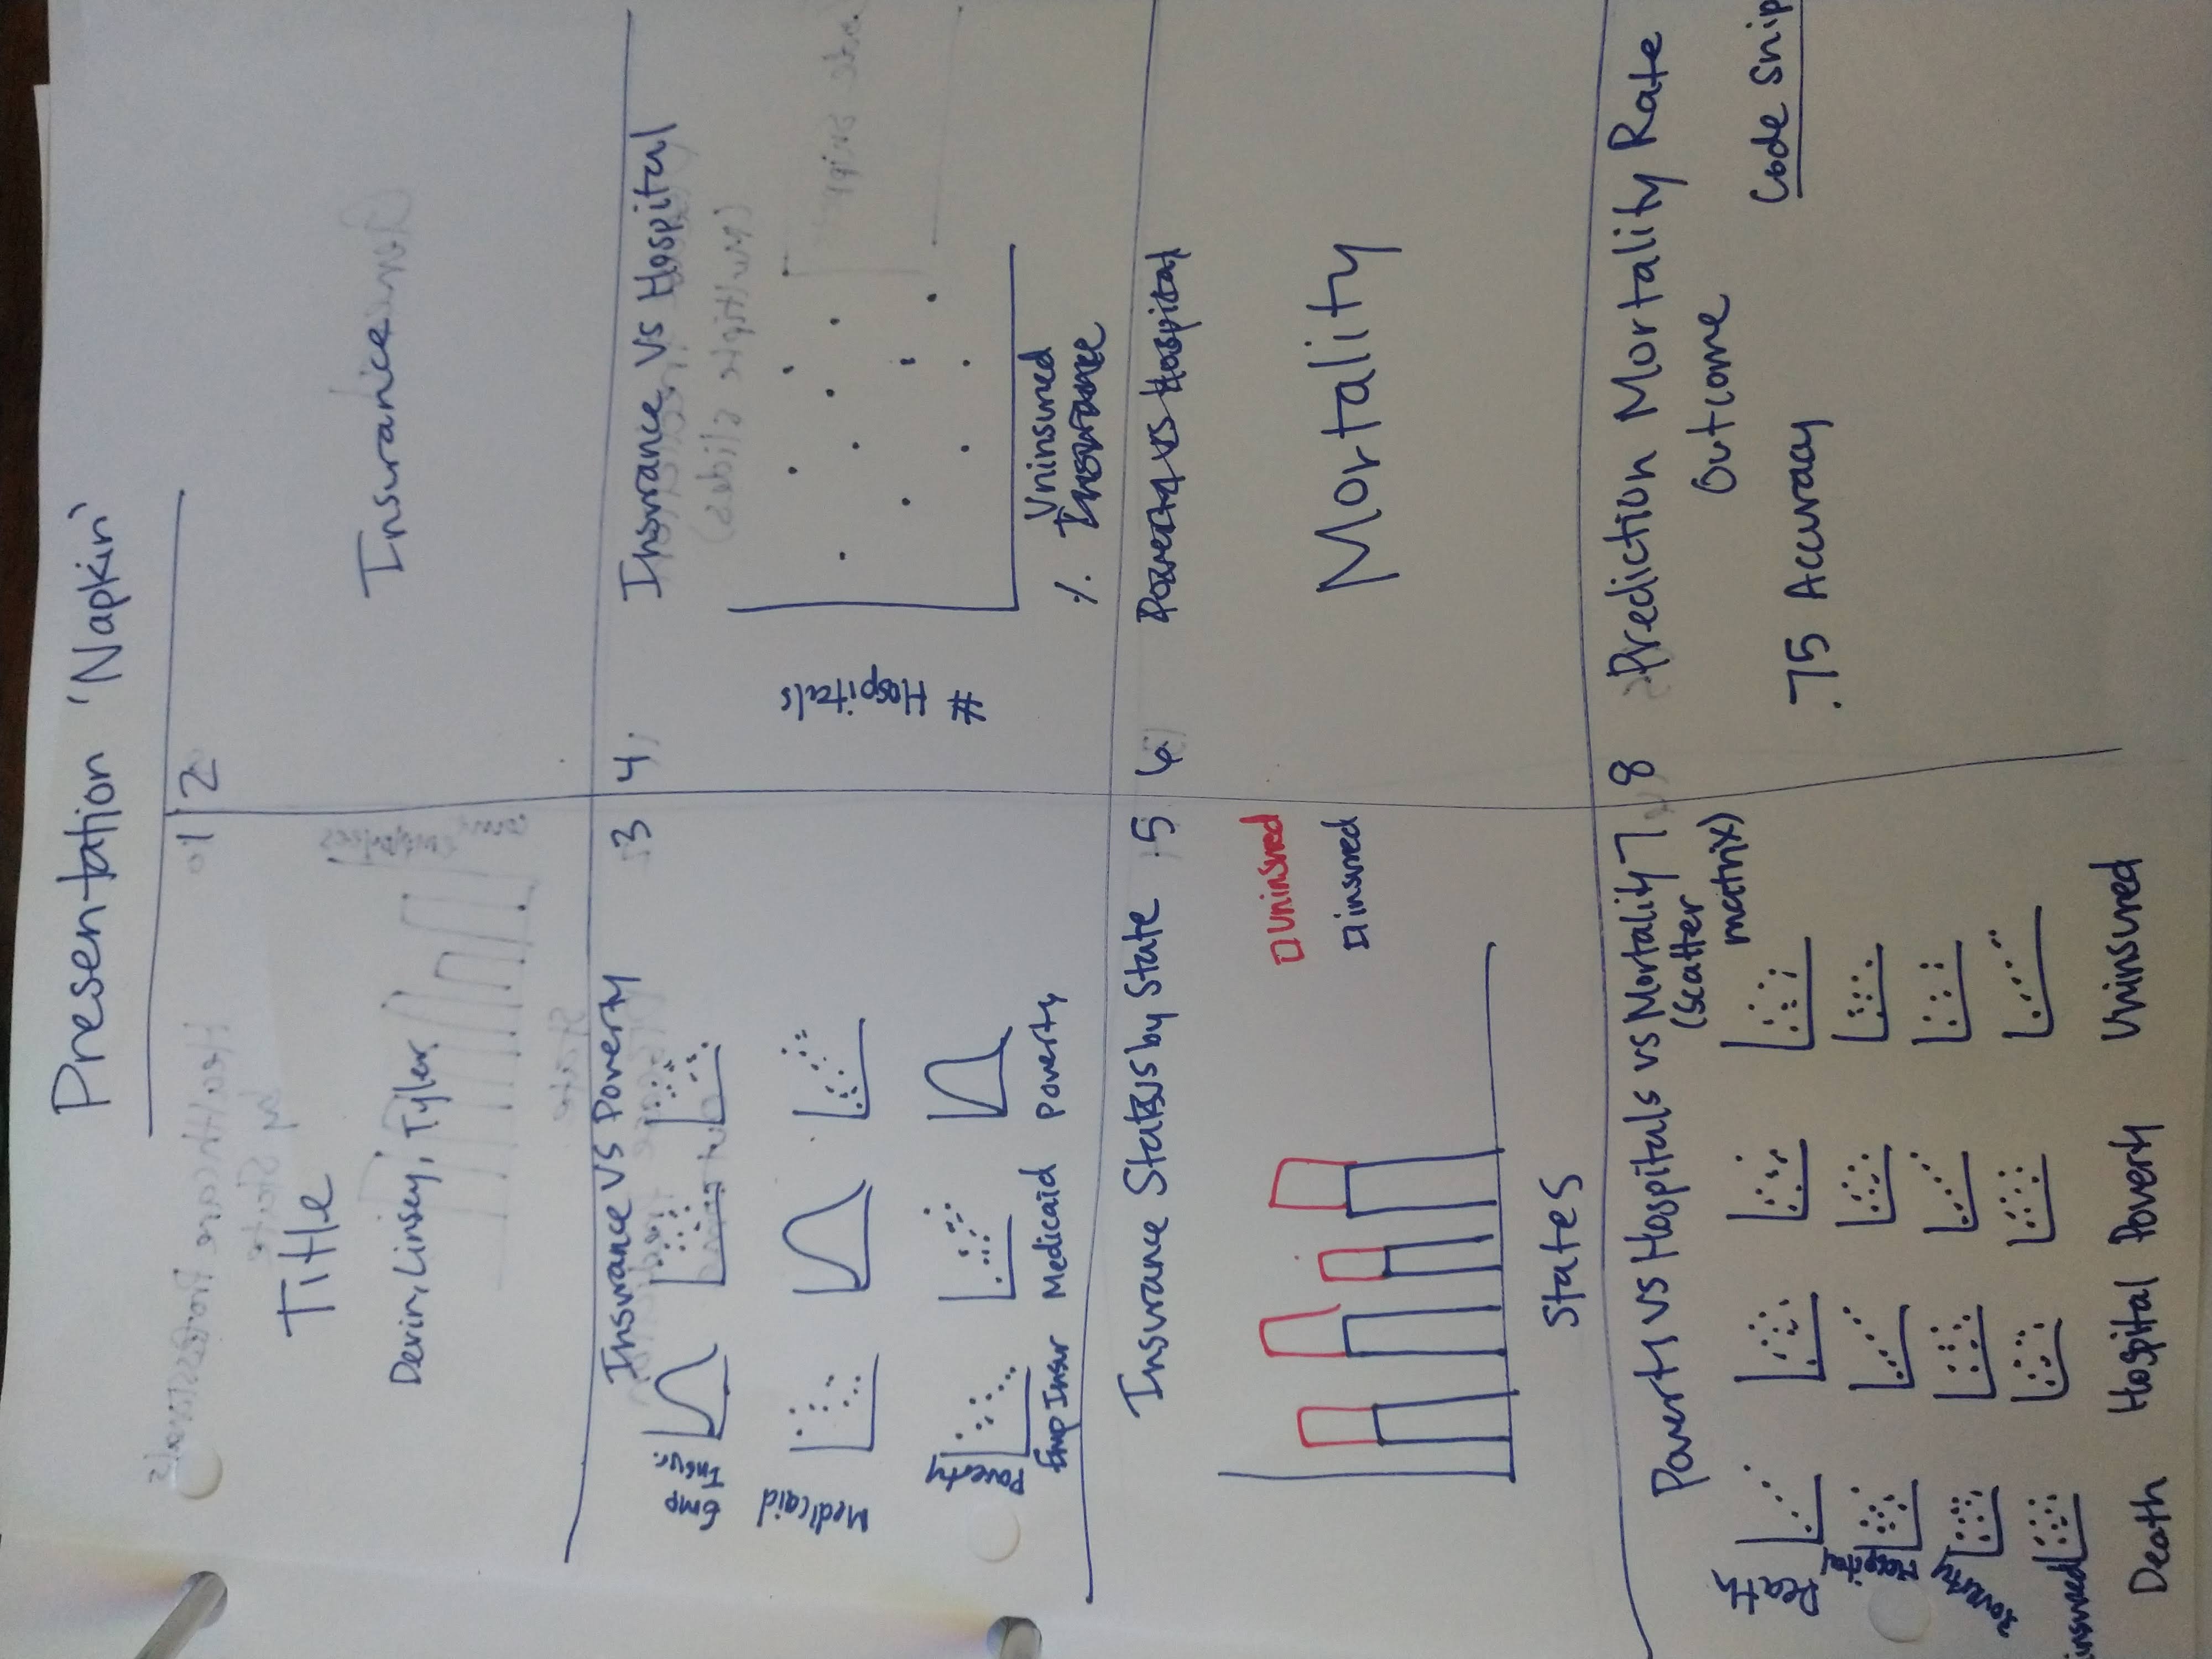 Presentation 'Napkin'
1
Title
Devin, Linsey, Tyler
2
Insurance
Insurance VS Poverty
3
Emp
Insur.
Medicaid
Poverty
Emp Insur
Medicaid
Poverty
4
Insurance VS Hospital
# Hospitals
Uninsured
% Insurance
Insurance Status by State
5
Uninsured
insured
States
6
Poverty VS Hospital
Mortality
Poverty VS Hospitals VS Mortality
7
(Scatter
matrix)
Death
Hospital
Poverty
insured
Death
Hospital
Poverty
Uninsured
8
Prediction Mortality Rate
Outcome
.75 Accuracy
Code Snip
Healthcare Professionals
by State
State
(multiple slides)